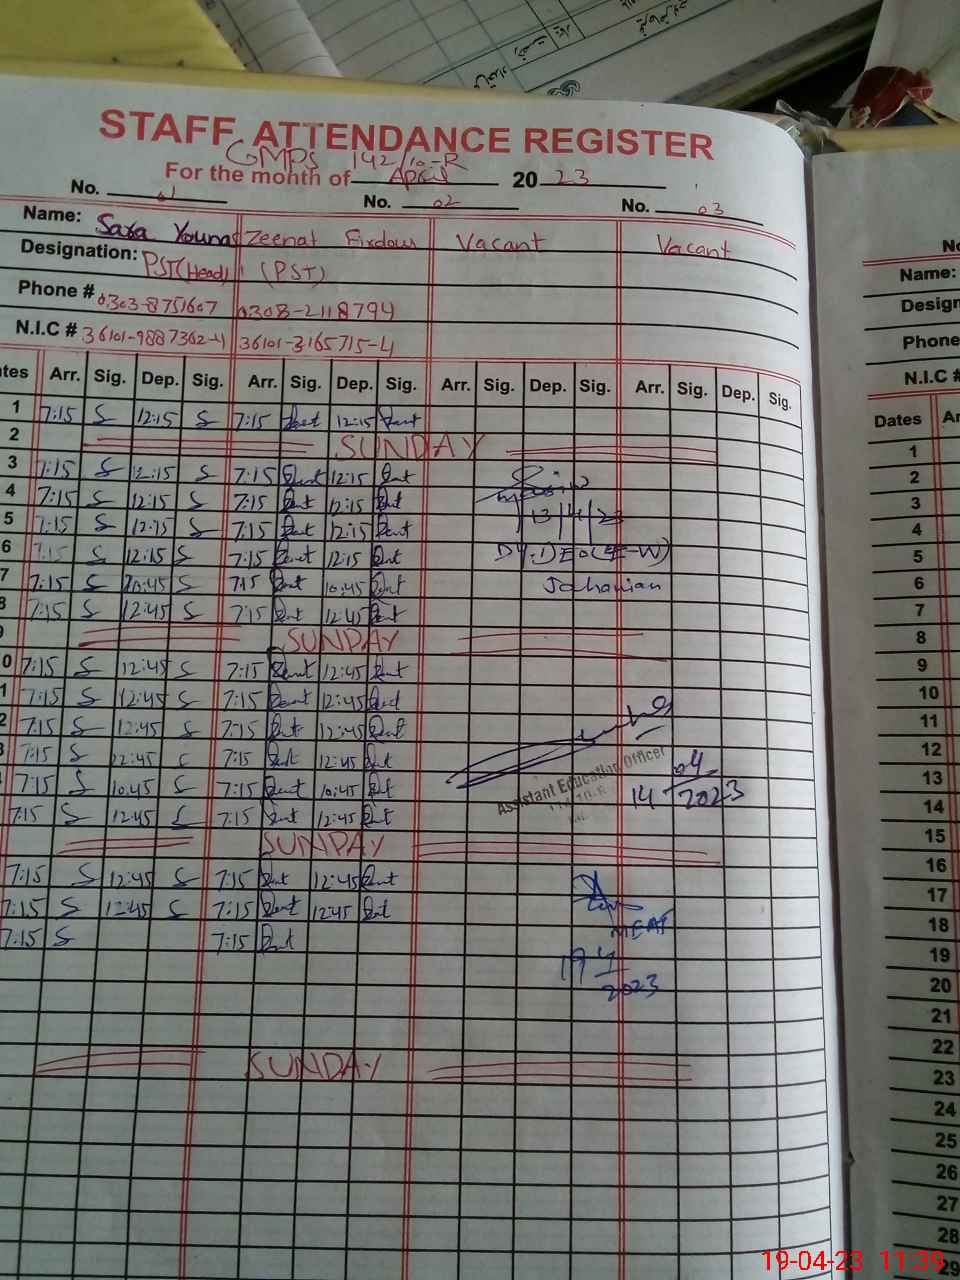 STAFF ATTENDANCE REGISTER
GMPS 142/10-R
For the month of April 2023
No. 01 No. 02 No. 03
Name: Sara Younas Zeenat Firdous Vacant Vacant
Designation: PST(Head) (PST)
Phone # 0303-8751607 0308-2118794
N.I.C # 36101-9887362-4 36101-3165715-4
ates Arr. Sig. Dep. Sig. Arr. Sig. Dep. Sig. Arr. Sig. Dep. Sig. Arr. Sig. Dep. Sig.
1 7:15 S 12:15 S 7:15 12:15
2 SUNDAY
3 7:15 S 12:15 S 7:15 12:15
4 7:15 S 12:15 S 7:15 12:15
5 7:15 S 12:15 S 7:15 12:15 13/4/23
6 7:15 S 12:15 S 7:15 12:15 DY.DEO(EE-W)
7 7:15 S 10:45 S 7:15 10:45 Jahanian
8 7:15 S 12:45 S 7:15 12:45
9 SUNDAY
0 7:15 S 12:45 S 7:15 12:45
1 7:15 S 12:45 S 7:15 12:45
2 7:15 S 12:45 S 7:15 12:45
3 7:15 S 12:45 S 7:15 12:45
7:15 S 10:45 S 7:15 10:45
Assistant Education Officer
14 04 2023
7:15 S 12:45 S 7:15 12:45
SUNDAY
7:15 S 12:45 S 7:15 12:45
7:15 S 12:45 S 7:15 12:45
MEA
7:15 S 7:15
19 4
2023
SUNDAY
No
Name:
Design
Phone
N.I.C #
Dates Ar
1
2
3
4
5
6
7
8
9
10
11
12
13
14
15
16
17
18
19
20
21
22
23
24
25
26
27
28
29
19-04-23 11:39